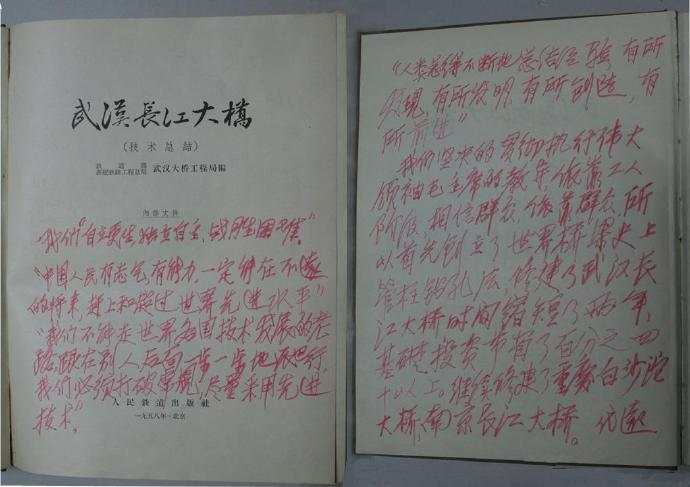 武漢長江大橋
(技术总結)
鉄道部
武汉大桥工程局編
内容大
我们"自立更生,独立自主,战胜困难"
"中国人民有志气,有能力,一定能在不遠
的将来,赶上和超过世界先进水平"
"我们不能走世界各国技术发展的老
路,跟在别人后面一步一步地爬行,
我们必须打破常規,尽量采用先进
技术。"
人民鉄道出版社
一九五八年·北京
"人类总得不断地总结经验,有所
发现,有所发明,有所创造,有
所前进"
我们坚决的贯彻执行伟大
领袖毛主席的教导,依靠工人
阶级,相信群众,依靠群众,所
以首先创立了世界桥梁史上
管柱钻孔法,修建了武汉长
江大桥时间缩短了两年,
基础投资节省了百分之四
十以上。继续修建了重庆白沙沱
大桥,南京长江大桥。